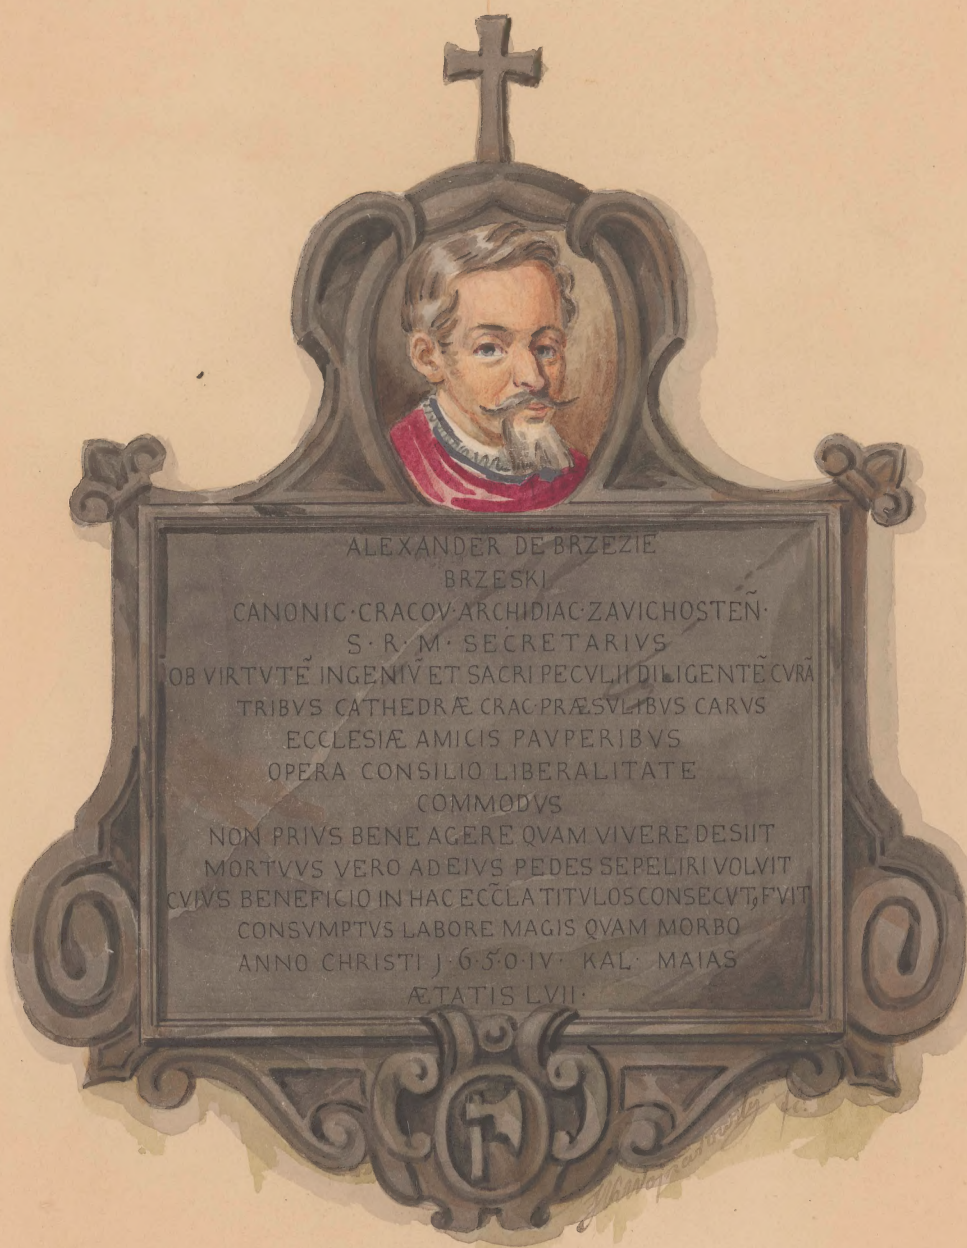 ALEXANDER DE BRZEZIE
BRZESKI
CANONIC·CRACOV·ARCHIDIAC·ZAVICHOSTEÑ·
S·R·M·SECRETARIVS
OB VIRTVTẼ INGENIṼ ET SACRI PECVLII DILIGENTẼ CVRÃ
TRIBVS CATHEDRÆ CRAC·PRÆSVLIBVS CARVS
ECCLESIÆ AMICIS PAVPERIBVS
OPERA CONSILIO LIBERALITATE
COMMODVS
NON PRIVS BENE AGERE QVAM VIVERE DESIIT
MORTVVS VERO AD EIVS PEDES SEPELIRI VOLVIT
CVIVS BENEFICIO IN HAC ECC̃LA TITVLOS CONSECVTꝰ FVIT
CONSVMPTVS LABORE MAGIS QVAM MORBO
ANNO CHRISTI J·6·5·0·IV· KAL· MAIAS
ÆTATIS LVII·